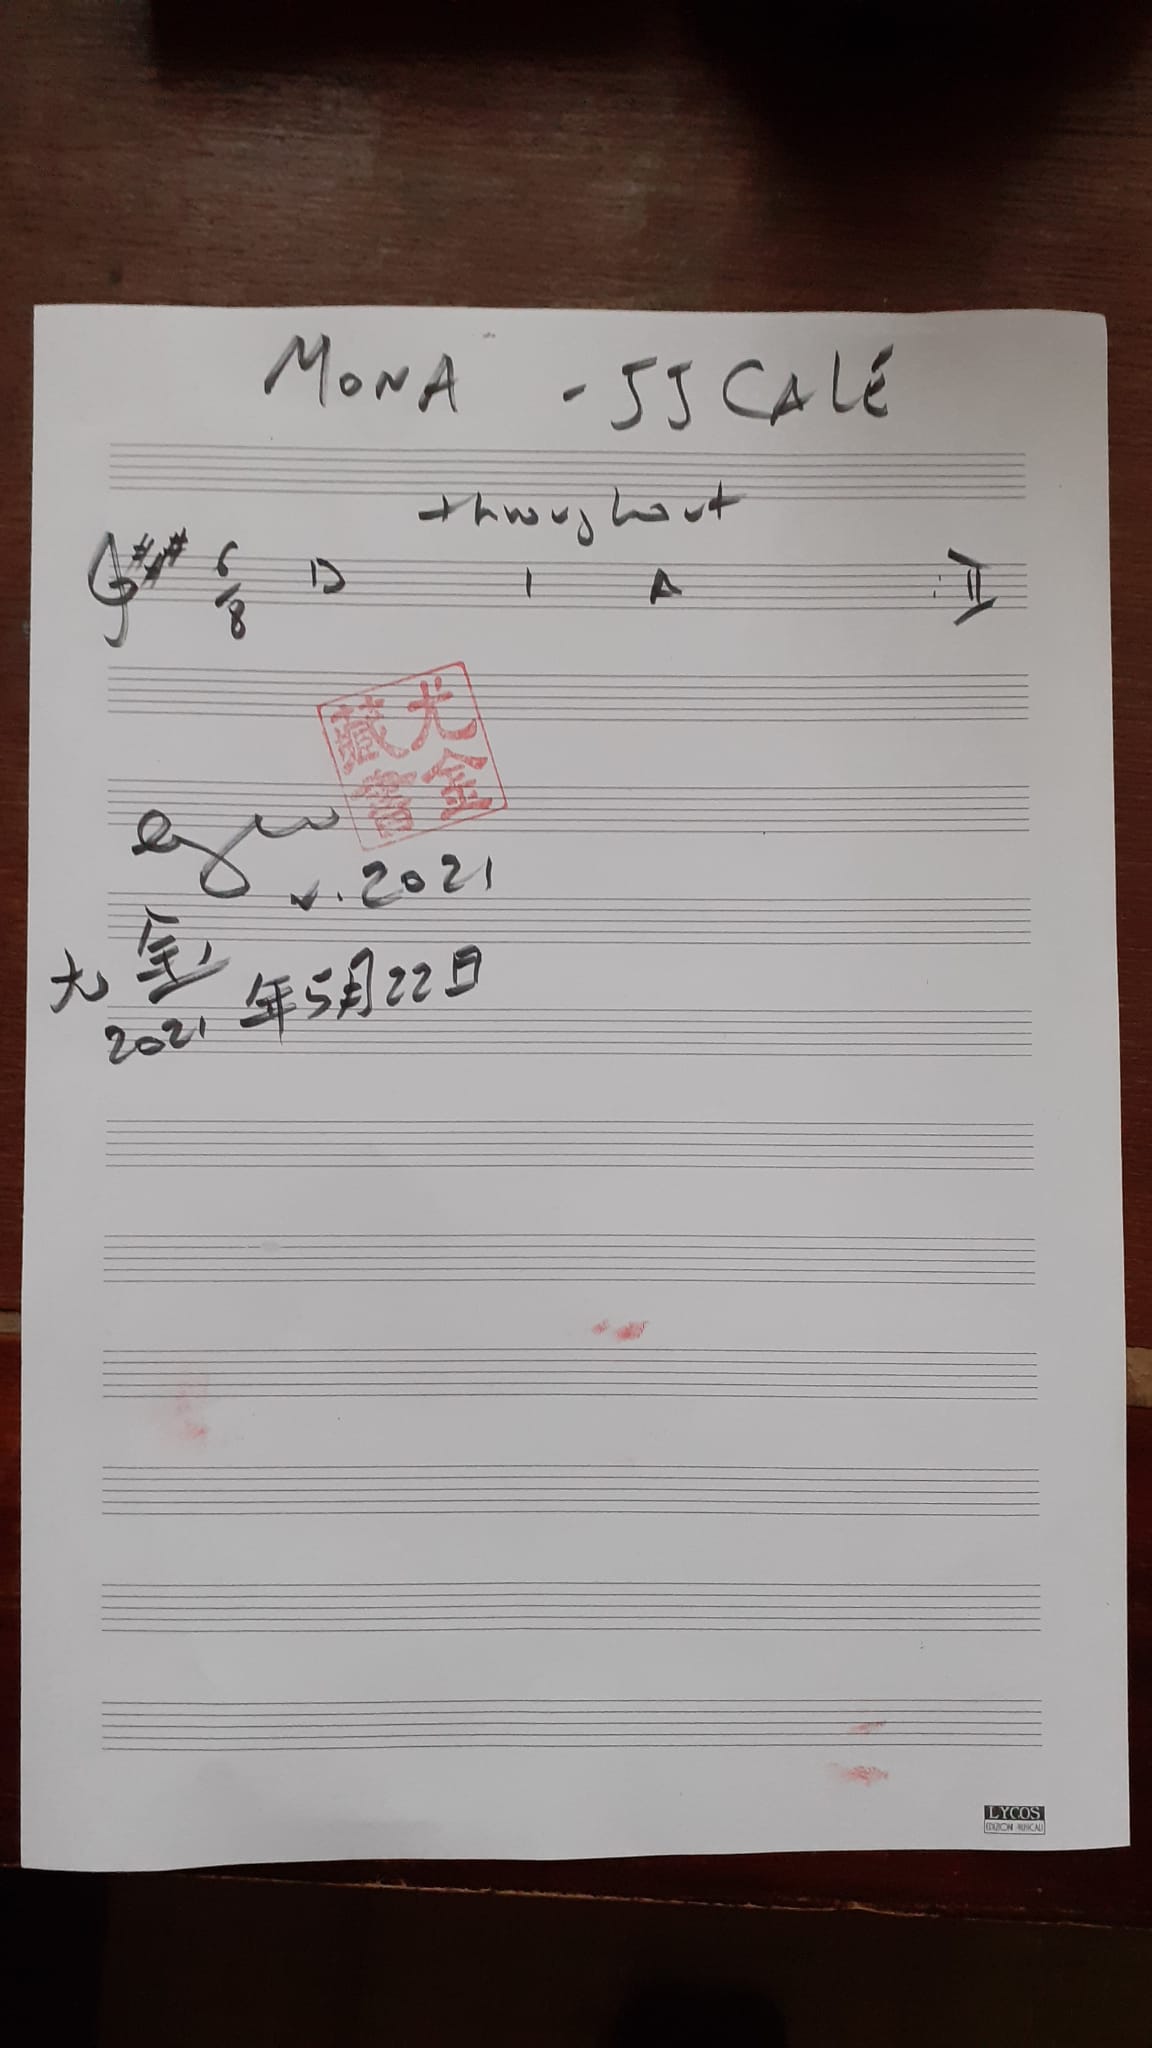 MONA - JJ CALÉ
throughout
6/8 D | A :||
尤金
藏書
v. 2021
尤金
2021年5月22日
LYCOS
EDIZIONI MUSICALI